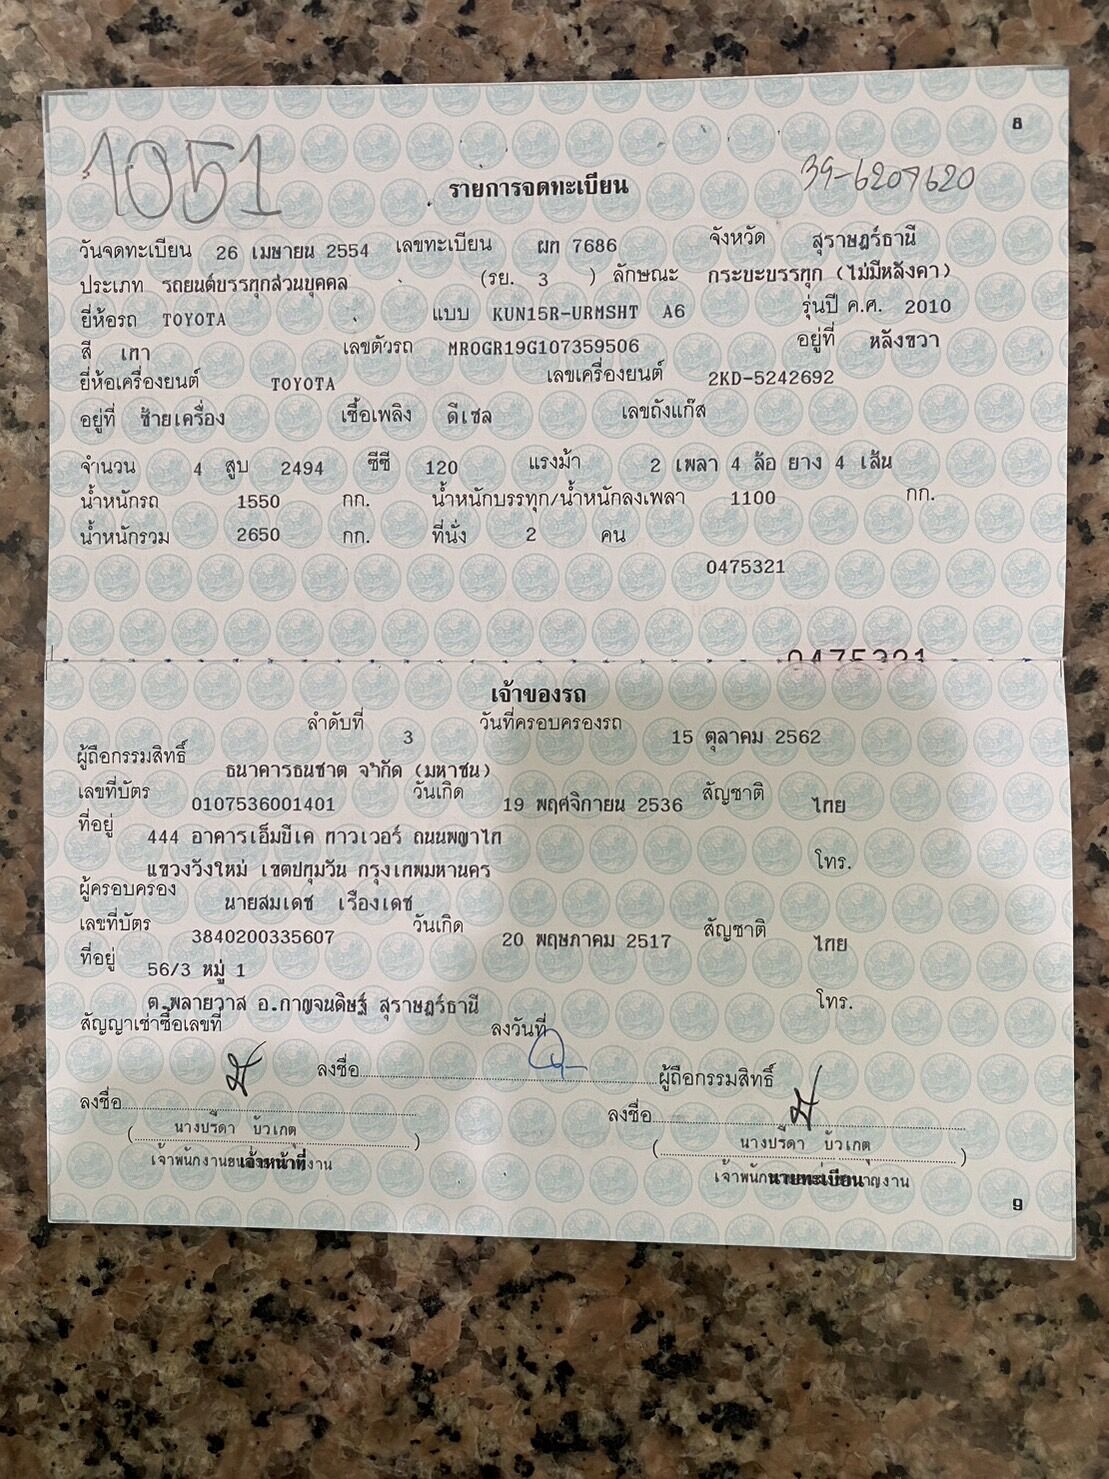 8
1051
39-6207620
รายการจดทะเบียน
วันจดทะเบียน 26 เมษายน 2554 เลขทะเบียน ผก 7686 จังหวัด สุราษฎร์ธานี
ประเภท รถยนต์บรรทุกส่วนบุคคล (รย. 3 ) ลักษณะ กระบะบรรทุก (ไม่มีหลังคา)
ยี่ห้อรถ TOYOTA แบบ KUN15R-URMSHT A6 รุ่นปี ค.ศ. 2010
สี เทา เลขตัวรถ MR0GR19G107359506 อยู่ที่ หลังขวา
ยี่ห้อเครื่องยนต์ TOYOTA เลขเครื่องยนต์ 2KD-5242692
อยู่ที่ ซ้ายเครื่อง เชื้อเพลิง ดีเซล เลขถังแก๊ส
จำนวน 4 สูบ 2494 ซีซี 120 แรงม้า 2 เพลา 4 ล้อ ยาง 4 เส้น
น้ำหนักรถ 1550 กก. น้ำหนักบรรทุก/น้ำหนักลงเพลา 1100 กก.
น้ำหนักรวม 2650 กก. ที่นั่ง 2 คน
0475321
0475321
เจ้าของรถ
ลำดับที่ 3 วันที่ครอบครองรถ 15 ตุลาคม 2562
ผู้ถือกรรมสิทธิ์ ธนาคารธนชาต จำกัด (มหาชน)
เลขที่บัตร 0107536001401 วันเกิด 19 พฤศจิกายน 2536 สัญชาติ ไทย
ที่อยู่ 444 อาคารเอ็มบีเค ทาวเวอร์ ถนนพญาไท
แขวงวังใหม่ เขตปทุมวัน กรุงเทพมหานคร โทร.
ผู้ครอบครอง นายสมเดช เรืองเดช
เลขที่บัตร 3840200335607 วันเกิด 20 พฤษภาคม 2517 สัญชาติ ไทย
ที่อยู่ 56/3 หมู่ 1
ต.พลายวาส อ.กาญจนดิษฐ์ สุราษฎร์ธานี โทร.
สัญญาเช่าซื้อเลขที่ ลงวันที่
ลงชื่อ ผู้ถือกรรมสิทธิ์
ลงชื่อ ลงชื่อ
( นางปรีดา บัวเกต ) ( นางปรีดา บัวเกต )
เจ้าหน้าที่ นายทะเบียน
9